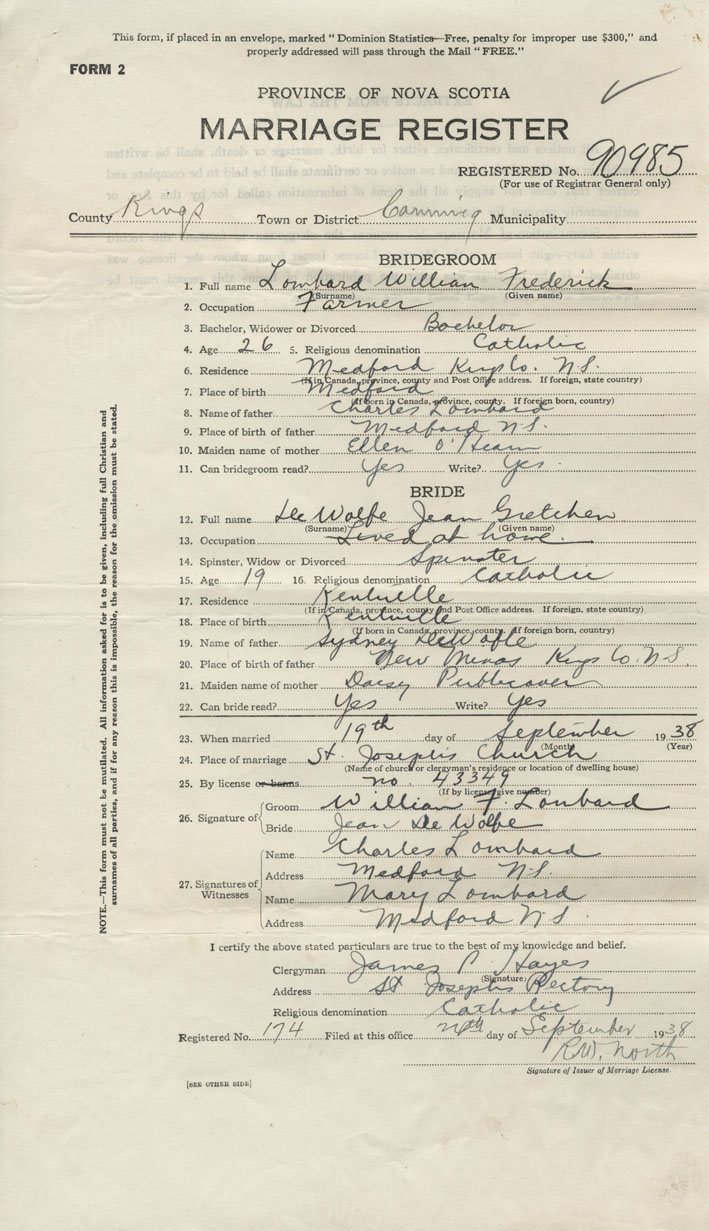 This form, if placed in an envelope, marked "Dominion Statistics—Free, penalty for improper use $300," and
properly addressed will pass through the Mail "FREE."
FORM 2
PROVINCE OF NOVA SCOTIA
MARRIAGE REGISTER
REGISTERED No. 90985
(For use of Registrar General only)
County Kings Town or District Canning Municipality
BRIDEGROOM
1. Full name Lombard William Frederick
(Surname) (Given name)
2. Occupation Farmer
3. Bachelor, Widower or Divorced Bachelor
4. Age 26 5. Religious denomination Catholic
6. Residence Medford Kings Co. N.S.
(If in Canada, province, county and Post Office address. If foreign, state country)
7. Place of birth Medford
(If born in Canada, province, county. If foreign born, country)
8. Name of father Charles Lombard
9. Place of birth of father Medford N.S.
10. Maiden name of mother Ellen O'Hearn
11. Can bridegroom read? Yes Write? Yes
BRIDE
12. Full name De Wolfe Jean Gretchen
(Surname) (Given name)
13. Occupation Lived at home
14. Spinster, Widow or Divorced Spinster
15. Age 19 16. Religious denomination Catholic
17. Residence Kentville
(If in Canada, province, county and Post Office address. If foreign, state country)
18. Place of birth Kentville
(If born in Canada, province, county. If foreign born, country)
19. Name of father Sydney DeWolfe
20. Place of birth of father New Minas Kings Co. N.S.
21. Maiden name of mother Daisy Publicover
22. Can bride read? Yes Write? Yes
23. When married 19th day of September 1938
(Month) (Year)
24. Place of marriage St. Joseph's Church
(Name of church or clergyman's residence or location of dwelling house)
25. By license or banns no. 43349
(If by license, give number)
26. Signature of Groom William F. Lombard
Bride Jean De Wolfe
27. Signatures of Witnesses
Name Charles Lombard
Address Medford N.S.
Name Mary Lombard
Address Medford N.S.
I certify the above stated particulars are true to the best of my knowledge and belief.
Clergyman James P. Hayes
(Signature)
Address St Joseph's Rectory
Religious denomination Catholic
Registered No. 174 Filed at this office day of September 1938
R.W. North
Signature of Issuer of Marriage License.
[SEE OTHER SIDE]
NOTE.—This form must not be mutilated. All information asked for is to be given, including full Christian and
surnames of all parties, and if for any reason this is impossible, the reason for the omission must be stated.